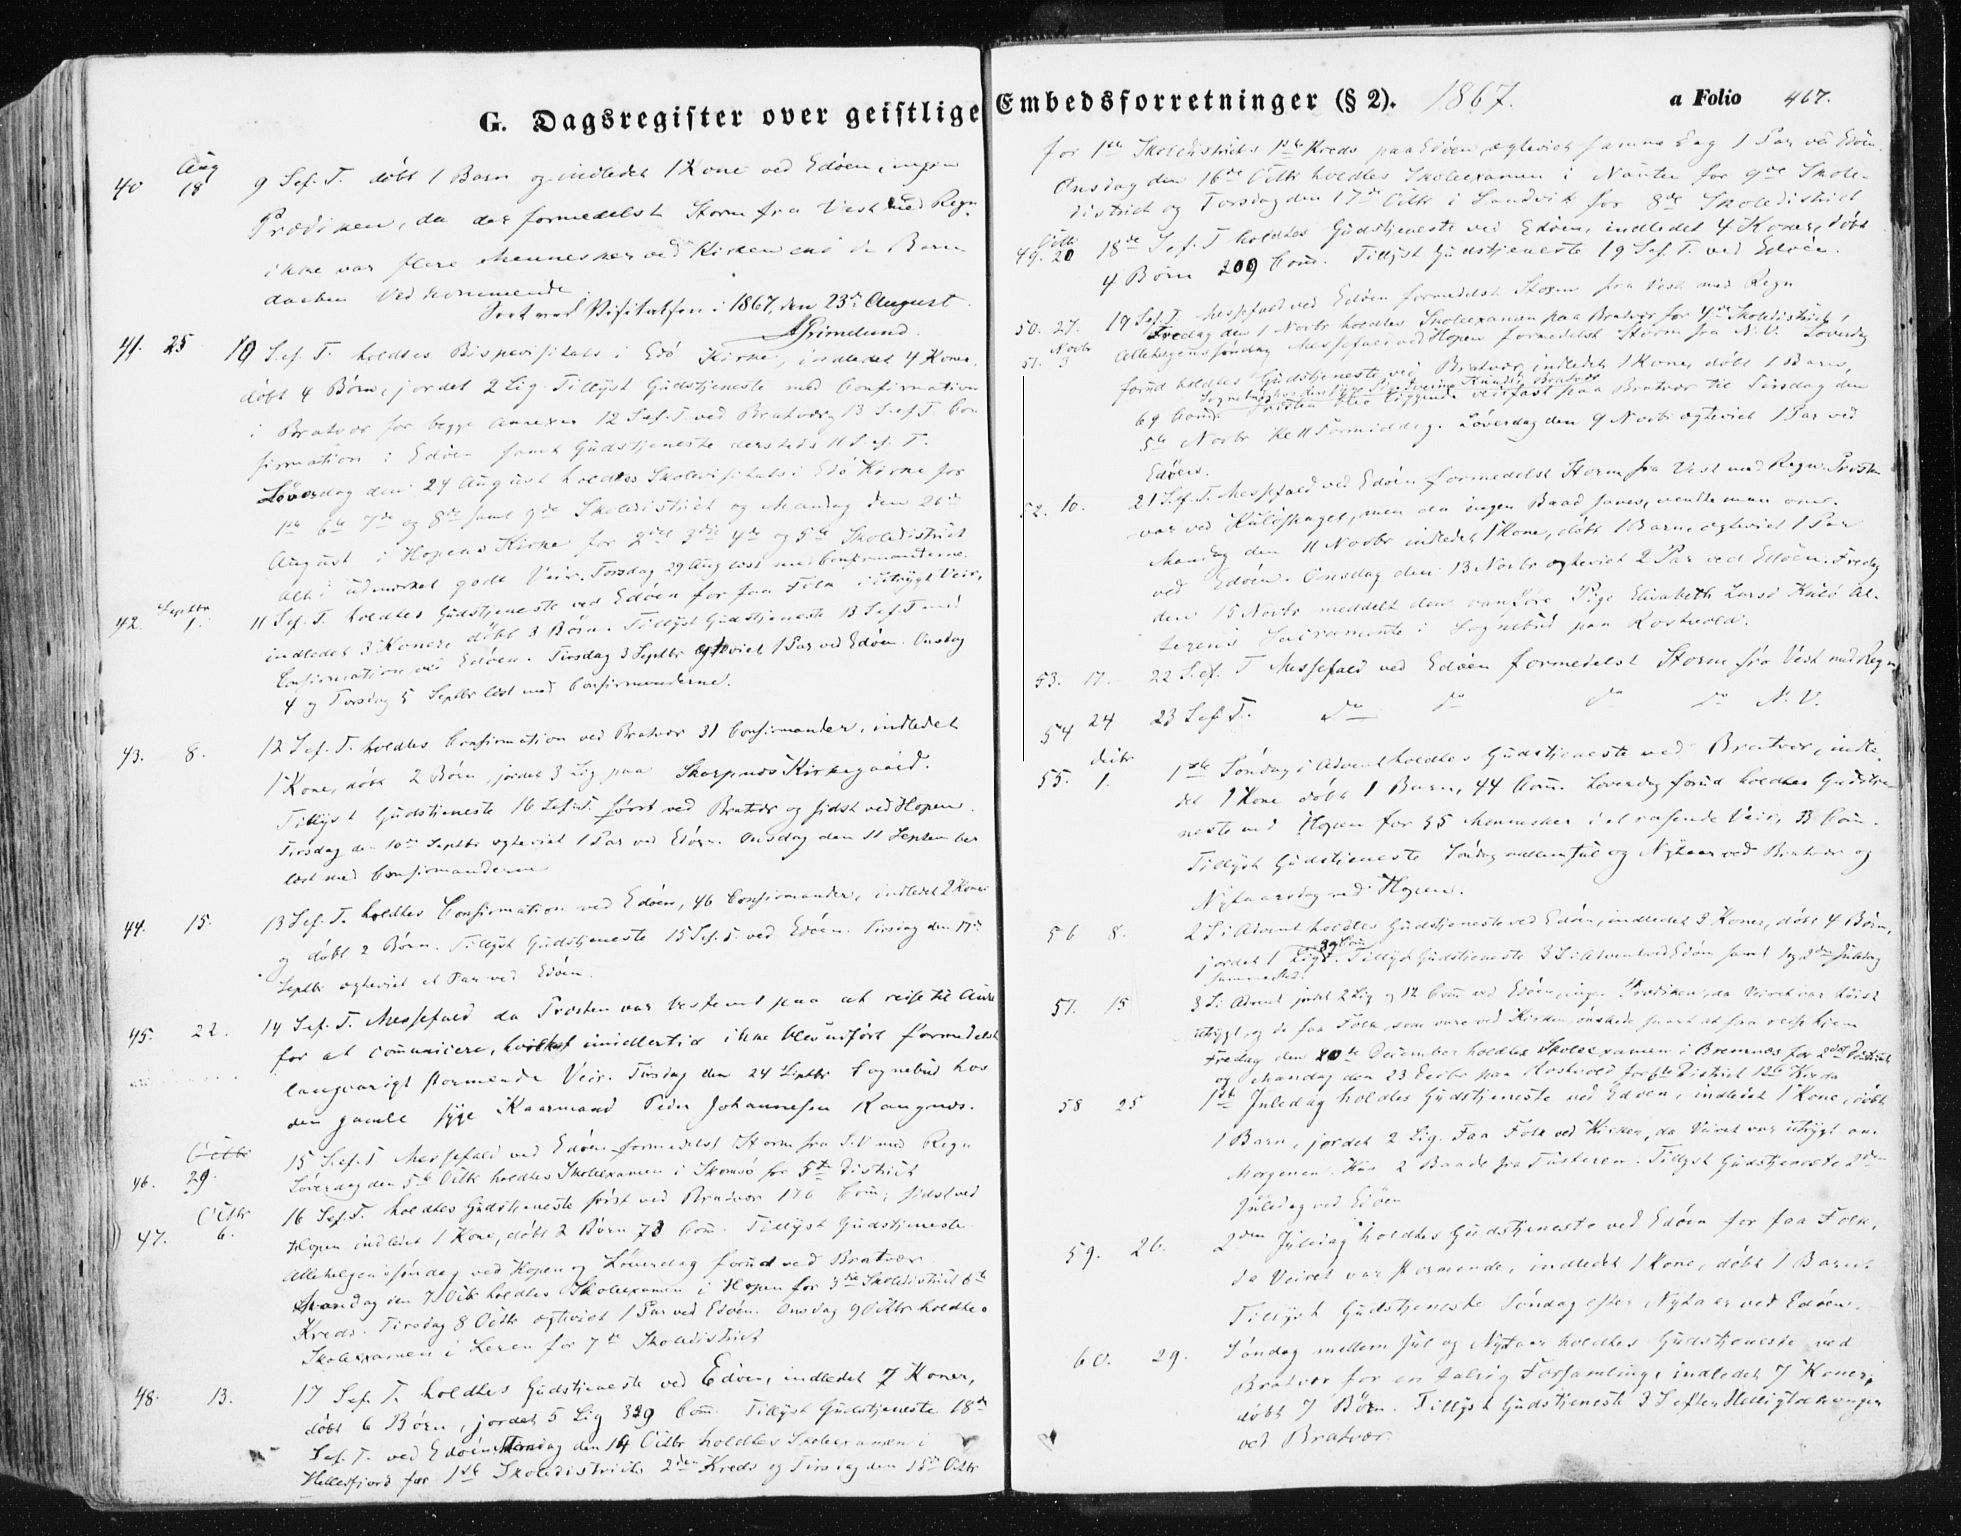 G. Dagsregister over geistlige Embedsforretninger (§ 2). 1867. a Folio 467.
40 Aug 18 9 S. ef. T. döbt 1 Barn og indledet 1 Kone ved Edöen, ingen
Prædiken, da der formedelst Storm fra Vest med Regn
ikke var flere Mennesker ved Kirken end de Barn
daaben vedkommende.
Seet ved Visitatsen i 1867, den 23de August.
Grimelund.
41. 25 10 S. ef. T. holdtes Bispevisitats i Edö Kirke, indledet 4 Koner,
döbt 4 Börn, jordet 2 Lig. Tillyst Gudstjeneste med Confirmation
i Bratvær for begge Annexer 12 S. ef. T. ved Bratvær og 13 S. ef. T. Con
firmation i Edöen samt Gudstjeneste dersteds 11 S. ef. T.
Löverdag den 24 August holdtes Skolevisitats i Edö Kirke for
1ste 6te 7de og 8de samt 9de Skoledistrict og Mandag den 26de
August i Hopens Kirke for 2det 3die 4de og 5te Skoledistrict
alt i udmærket godt Veir. Torsdag 29 Aug læst med Confirmanderne.
42. Septbr 1. 11 S. ef. T. holdtes Gudstjeneste ved Edöen for faa Folk i utrygt Veir,
indledet 3 Koner, döbt 3 Börn. Tillyst Gudstjeneste 13 S. ef. T. med
Confirmation ved Edöen. Tirsdag 3 Septbr ægteviet 1 Par ved Edöen. Onsdag
4 og Torsdag 5 Septbr læst med Confirmanderne.
43. 8. 12 S. ef. T. holdtes Confirmation ved Bratvær 31 Confirmander, indledet
1 Kone, döbt 2 Börn, jordet 3 Lig paa Skarpnæs Kirkegaard.
Tillyst Gudstjeneste 16 S. ef. T. först ved Bratvær og sidst ved Hopen.
Tirsdag den 10de Septbr ægteviet 1 Par ved Edöen. Onsdag den 11 September
læst med Confirmanderne
44. 15. 13 S. ef. T. holdtes Confirmation ved Edöen, 46 Confirmander, indledet 2 Koner
og döbt 2 Börn. Tillyst Gudstjeneste 15 S. ef. T. ved Edöen. Tirsdag den 17de
Septbr ægteviet et Par ved Edöen.
45. 22. 14 S. ef. T. Messefald da Præsten var bestemt paa at reise til Aure
for at communicere, hvilket imidlertid ikke blev udfört formedelst
langvarigt stormende Veir. Tirsdag den 24 Septbr Sognebud hos
den gamle syge Kaarmand Peder Johannesen Rangnæs.
46. Octbr 29. 15 S. ef. T. Messefald ved Edöen formedelst Storm fra S.V. med Regn
Löverdag den 5te Octbr holdtes Skoleexamen i Skomsö for 5te District
47. Octbr 6. 16 S. ef. T. holdtes Gudstjeneste först ved Bratvær 176 Com., sidst ved
Hopen indledet 1 Kone, döbt 2 Börn 73 Com. Tillyst Gudstjeneste
Allehelgenssöndag ved Hopen og Löverdag forud ved Bratvær
Mandag den 7 Octbr holdtes Skoleexamen i Hopen for 3die Skoledistrict 6te
Kreds. Tirsdag 8 Octbr ægteviet 1 Par ved Edöen. Onsdag 9 Octbr holdtes
Skoleexamen i Leren for 7de Skoledistrict
48. 13. 17 S. ef. T. holdtes Gudstjeneste ved Edöen, indledet 7 Koner,
döbt 6 Börn, jordet 5 Lig 329 Com. Tillyst Gudstjeneste 18de
S. ef. T. ved Edöen. Mandag den 14 Octbr holdtes Skoleexamen i
Hellesfjord for 1ste Skoledistricts 2den Kreds og Tirsdag den 15de Octbr
for 1ste Skoledistricts 1ste Kreds paa Edöen, ægteviet samme Dag 1 Par ved Edöen.
Onsdag den 16de Octbr holdtes Skoleexamen i Nausten for 9de Skole-
district og Torsdag den 17de Octbr i Sandvik for 8de Skoledistrict
49. Octbr 20 18de S. ef. T. holdtes Gudstjeneste ved Edöen, indledet 4 Koner, döbt
4 Börn 209 Com. Tillyst Gudstjeneste 19 S. ef. T. ved Edöen.
50. 27. 19 S. ef. T. Messefald ved Edöen formedelst Storm fra Vest med Regn
Fredag den 1 Novbr holdtes Skoleexamen paa Bratvær for 4de Skoledistrict,
51. Novbr 3 Allehelgenssöndag Messefald ved Hopen formedelst Storm fra N.V. Löverdag
forud holdtes Gudstjeneste ved Bratvær, indledet 1 Kone, döbt 1 Barn,
Sognebud hos den syge Bratvær
69 Com. Præsten blev liggende veirfast paa Bratvær til Tirsdag den
5te Novbr Kl 11 Formiddag. Löverdag den 9 Novbr ægteviet 1 Par ved
Edöen.
52. 10. 21 S. ef. T. Messefald ved Edöen formedelst Storm fra Vest med Regn. Præsten
var ved Kulöhaget, men da ingen Baad saaes, vendte man om.
Mandag den 11 Novbr indledet 1 Kone, döbt 1 Barn, ægteviet 1 Par
ved Edöen. Onsdag den 13 Novbr ægteviet 2 Par ved Edöen. Fredag
den 15 Novbr meddelt den vanföre Pige Elisabeth Larsd Kulö Al-
terens Sacramente i Sognebud paa Rostvold.
53. 17. 22 S. ef. T. Messefald ved Edöen formedelst Storm fra Vest med Regn
54 24 23 S. ef. T. do do do do N.V.
55. Decbr 1. 1ste Söndag i Advent holdtes Gudstjeneste ved Bratvær, indle-
det 1 Kone döbt 1 Barn, 44 Com. Löverdag forud holdtes Gudstje-
neste ved Hopen for 35 Mennesker i et rasende Veir, 13 Com.
Tillyst Gudstjeneste Söndag mellem Jul og Nytaar ved Bratvær og
Nytaarsdag ved Hopen.
56 8. 2 S. i Advent holdtes Gudstjeneste ved Edöen, indledet 3 Koner, döbt 4 Börn,
jordet 1 Lig. 89 Com. Tillyst Gudstjeneste 3 S. i Advent ved Edöen samt 1 og 2den Juledag
sammesteds.
57. 15 3 S. i Advent jordet 2 Lig og 12 Com ved Edöen, ingen Prædiken, da Veiret var höist
utrygt, og de faa Folk, som vare ved Kirken önskede snart at faa reise hjem
Fredag den 20de December holdtes Skoleexamen i Bremnæs for 2det District
og Mandag den 23 Decbr paa Rostvold for 6te District 12te Kreds
58 25 1ste Juledag holdtes Gudstjeneste ved Edöen, indledet 1 Kone, döbt
1 Barn, jordet 2 Lig. Faa Folk ved Kirken, da Veiret var utrygt om
Morgenen. Kun 2 Baade fra Tusteren. Tillyst Gudstjeneste 2den
Juledag ved Edöen
59. 26. 2den Juledag holdtes Gudstjeneste ved Edöen for faa Folk,
da Veiret var stormende, indledet 1 Kone, döbt 1 Barn.
Tillyst Gudstjeneste Söndag efter Nytaar ved Edöen.
60. 29. Söndag mellem Jul og Nytaar holdtes Gudstjeneste ved
Bratvær for en talrig Forsamling, indledet 7 Koner,
döbt 7 Börn. Tillyst Gudstjeneste 3 S. efter Helligtrekonger
ved Bratvær